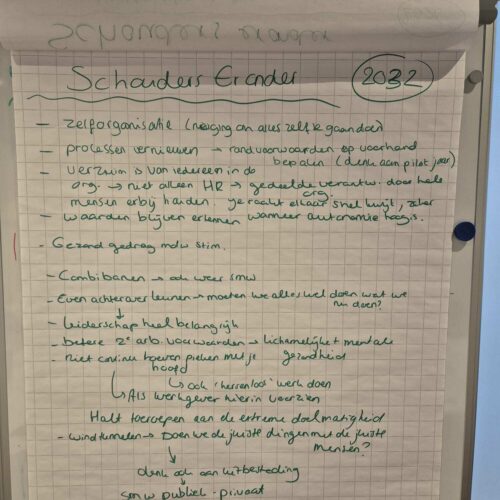 Schouders Eronder 2032
- zelforganisatie (neiging om alles zelf te gaan doen)
- processen vernieuwen → randvoorwaarden op voorhand
bepalen (denk aan pilot jaar)
- verzuim is van iedereen in de
org. → niet alleen HR → gedeelde verantw. door hele
org.
mensen erbij houden. je raakt elkaar snel kwijt, zeker
- waarden blijven erkennen wanneer autonomie hoog is.
- Gezond gedrag mdw stim.
- Combibanen → ook weer smw
- Even achterover leunen → moeten we alles wel doen wat we
nu doen?
- leiderschap heel belangrijk
- betere 2e arb. voorwaarden → lichamelijk + mentale
gezondheid
- niet continu hoeven pieken met je
hoofd
↳ ook 'hersenloos' werk doen
↳ Als werkgever hierin voorzien
Halt toeroepen aan de extreme doelmatigheid
- windtunnelen → Doen we de juiste dingen met de juiste
mensen?
denk ook aan uitbesteding
smw publiek - privaat